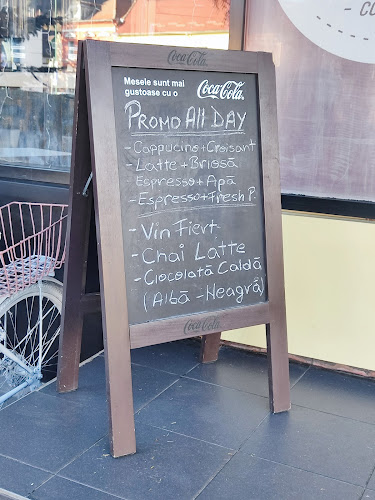 Coca-Cola
Mesele sunt mai
gustoase cu o
Coca-Cola.
PROMO All DAY
-Cappucino+Croisant
-Latte+Briosă
Espresso+Apă
-Espresso+Fresh P.
-Vin Fiert
-Chai Latte
-Ciocolată Caldă
(Albă -Neagră)
Coca-Cola